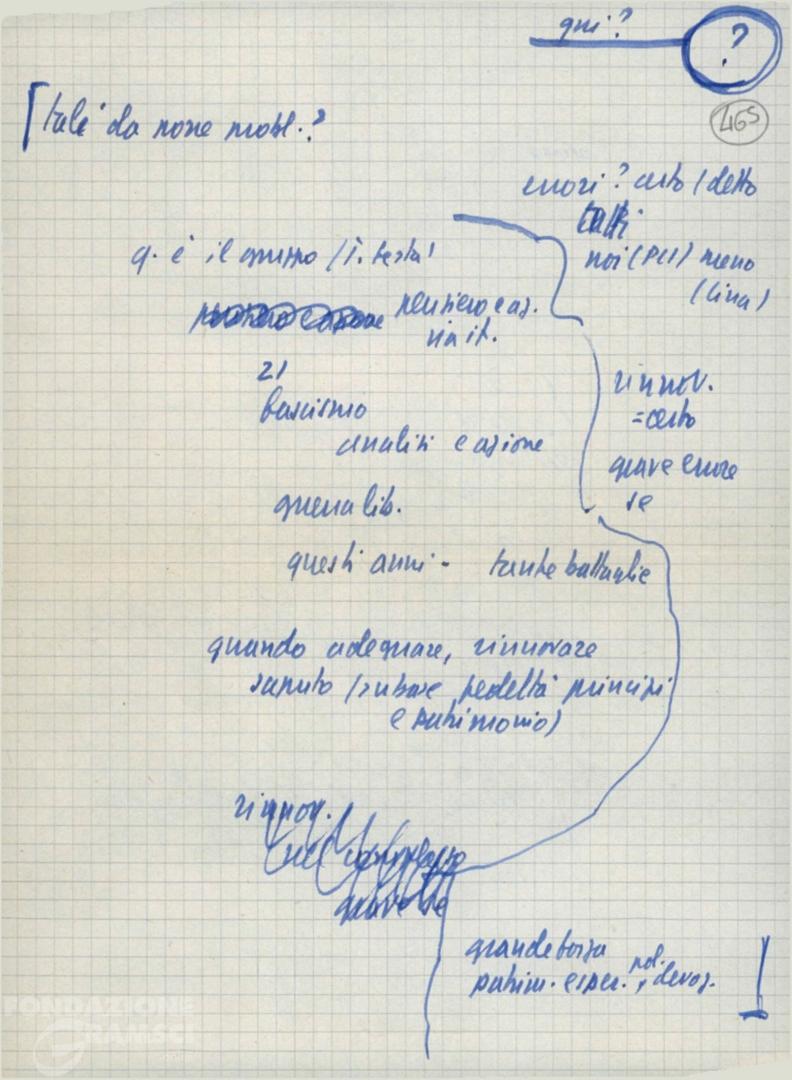 qui?
?
465
tale da porre probl.?
errori? certo (detto
tutti
q. è il grosso (I. testa)
noi (PCI) meno
(Cina)
pensiero e azione pensiero e az.
via it.
21
fascismo
analisi e azione
rinnov.
=certo
grave errore
se
guerra lib.
questi anni - tante battaglie
quando adeguare, rinnovare
saputo ( fedeltà principi
e patrimonio)
rinnov.
nel complesso
grave se
grande forza
patrim. esper. pol., devoz.
FONDAZIONE
GRAMSCI